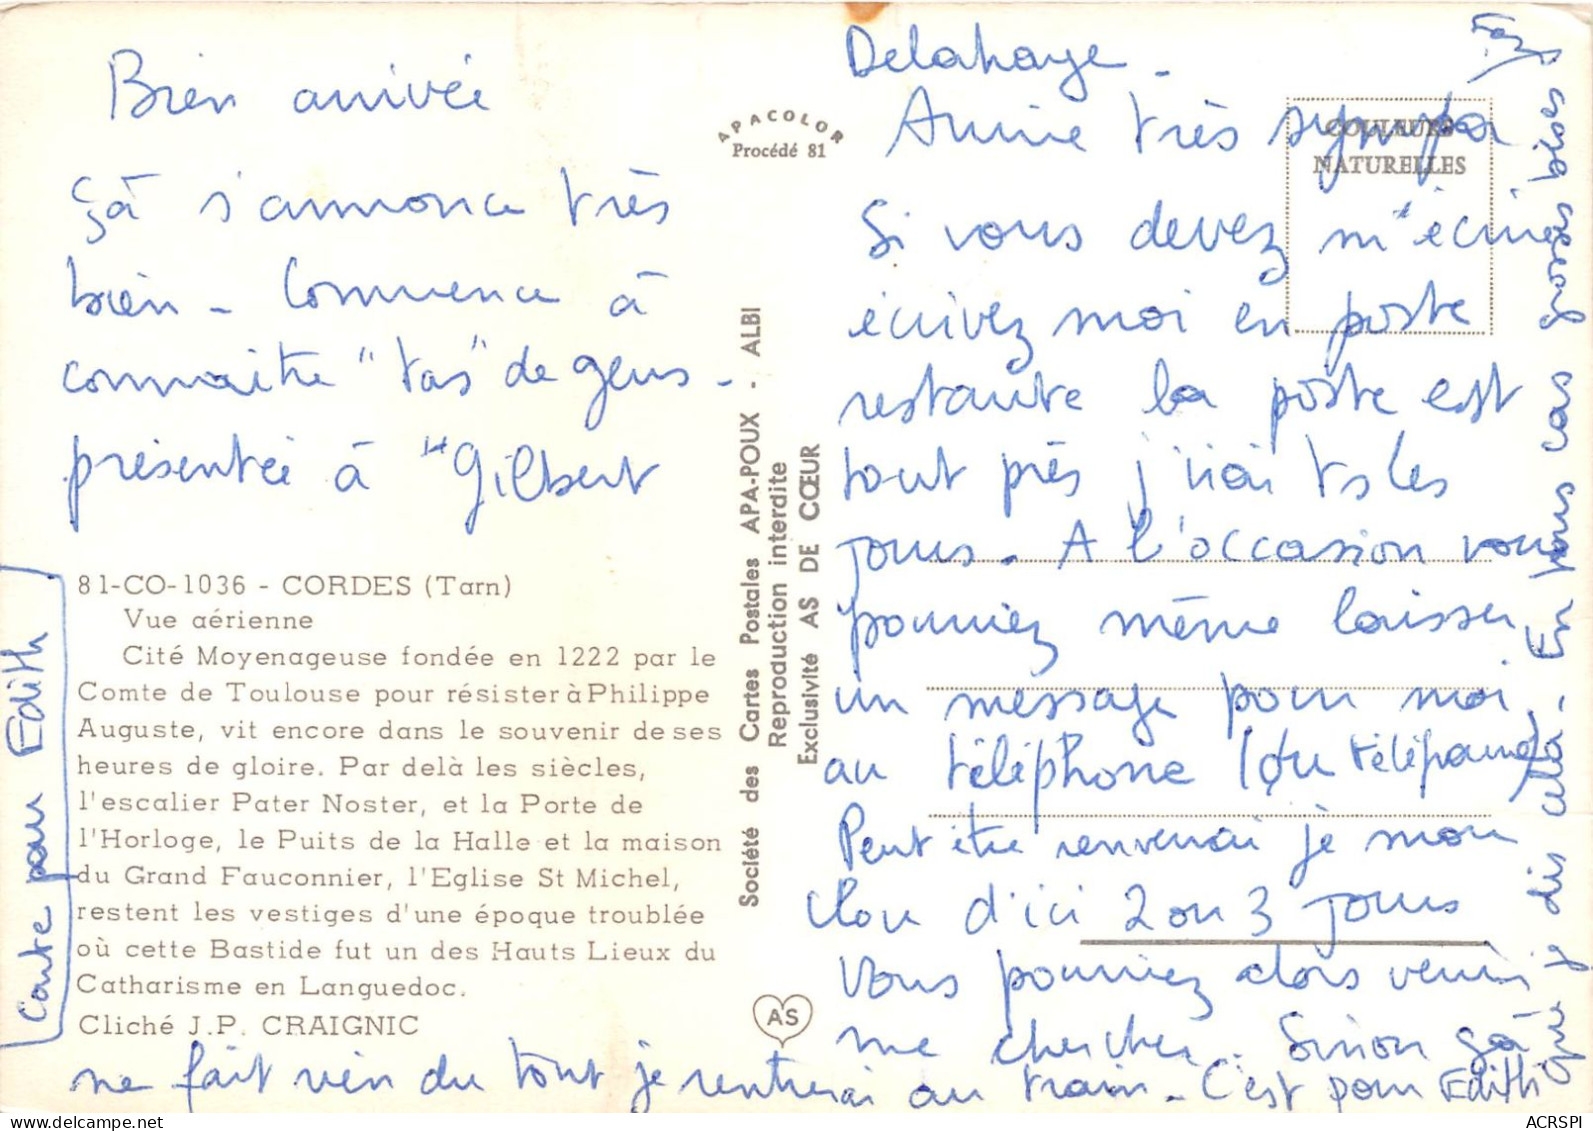 Bien arrivée
çà s'annonce très
bien - Commence à
connaitre "tas" de gens -
présentée à Gilbert
81-CO-1036 - CORDES (Tarn)
Vue aérienne
Cité Moyenageuse fondée en 1222 par le
Comte de Toulouse pour résister à Philippe
Auguste, vit encore dans le souvenir de ses
heures de gloire. Par delà les siècles,
l'escalier Pater Noster, et la Porte de
l'Horloge, le Puits de la Halle et la maison
du Grand Fauconnier, l'Eglise St Michel,
restent les vestiges d'une époque troublée
où cette Bastide fut un des Hauts Lieux du
Catharisme en Languedoc.
Cliché J.P. CRAIGNIC
Carte pour Edith
APACOLOR
Procédé 81
Société des Cartes Postales APA-POUX - ALBI
Reproduction interdite
Exclusivité AS DE CŒUR
AS
COULEURS
NATURELLES
Delahaye -
Annie très sympa
Si vous devez m'écrire
écrivez moi en poste
restante la poste est
tout près j'irai ts les
jours - A l'occasion vous
pourriez même laisser
un message pour moi
au téléphone
Peut être renverrai je mon
clou d'ici 2 ou 3 jours
Vous pourriez alors venir
me chercher. Sinon çà
ne fait rien du tout je rentrerai au train - C'est pour Edith
que je dis cela. En vous grosses bises